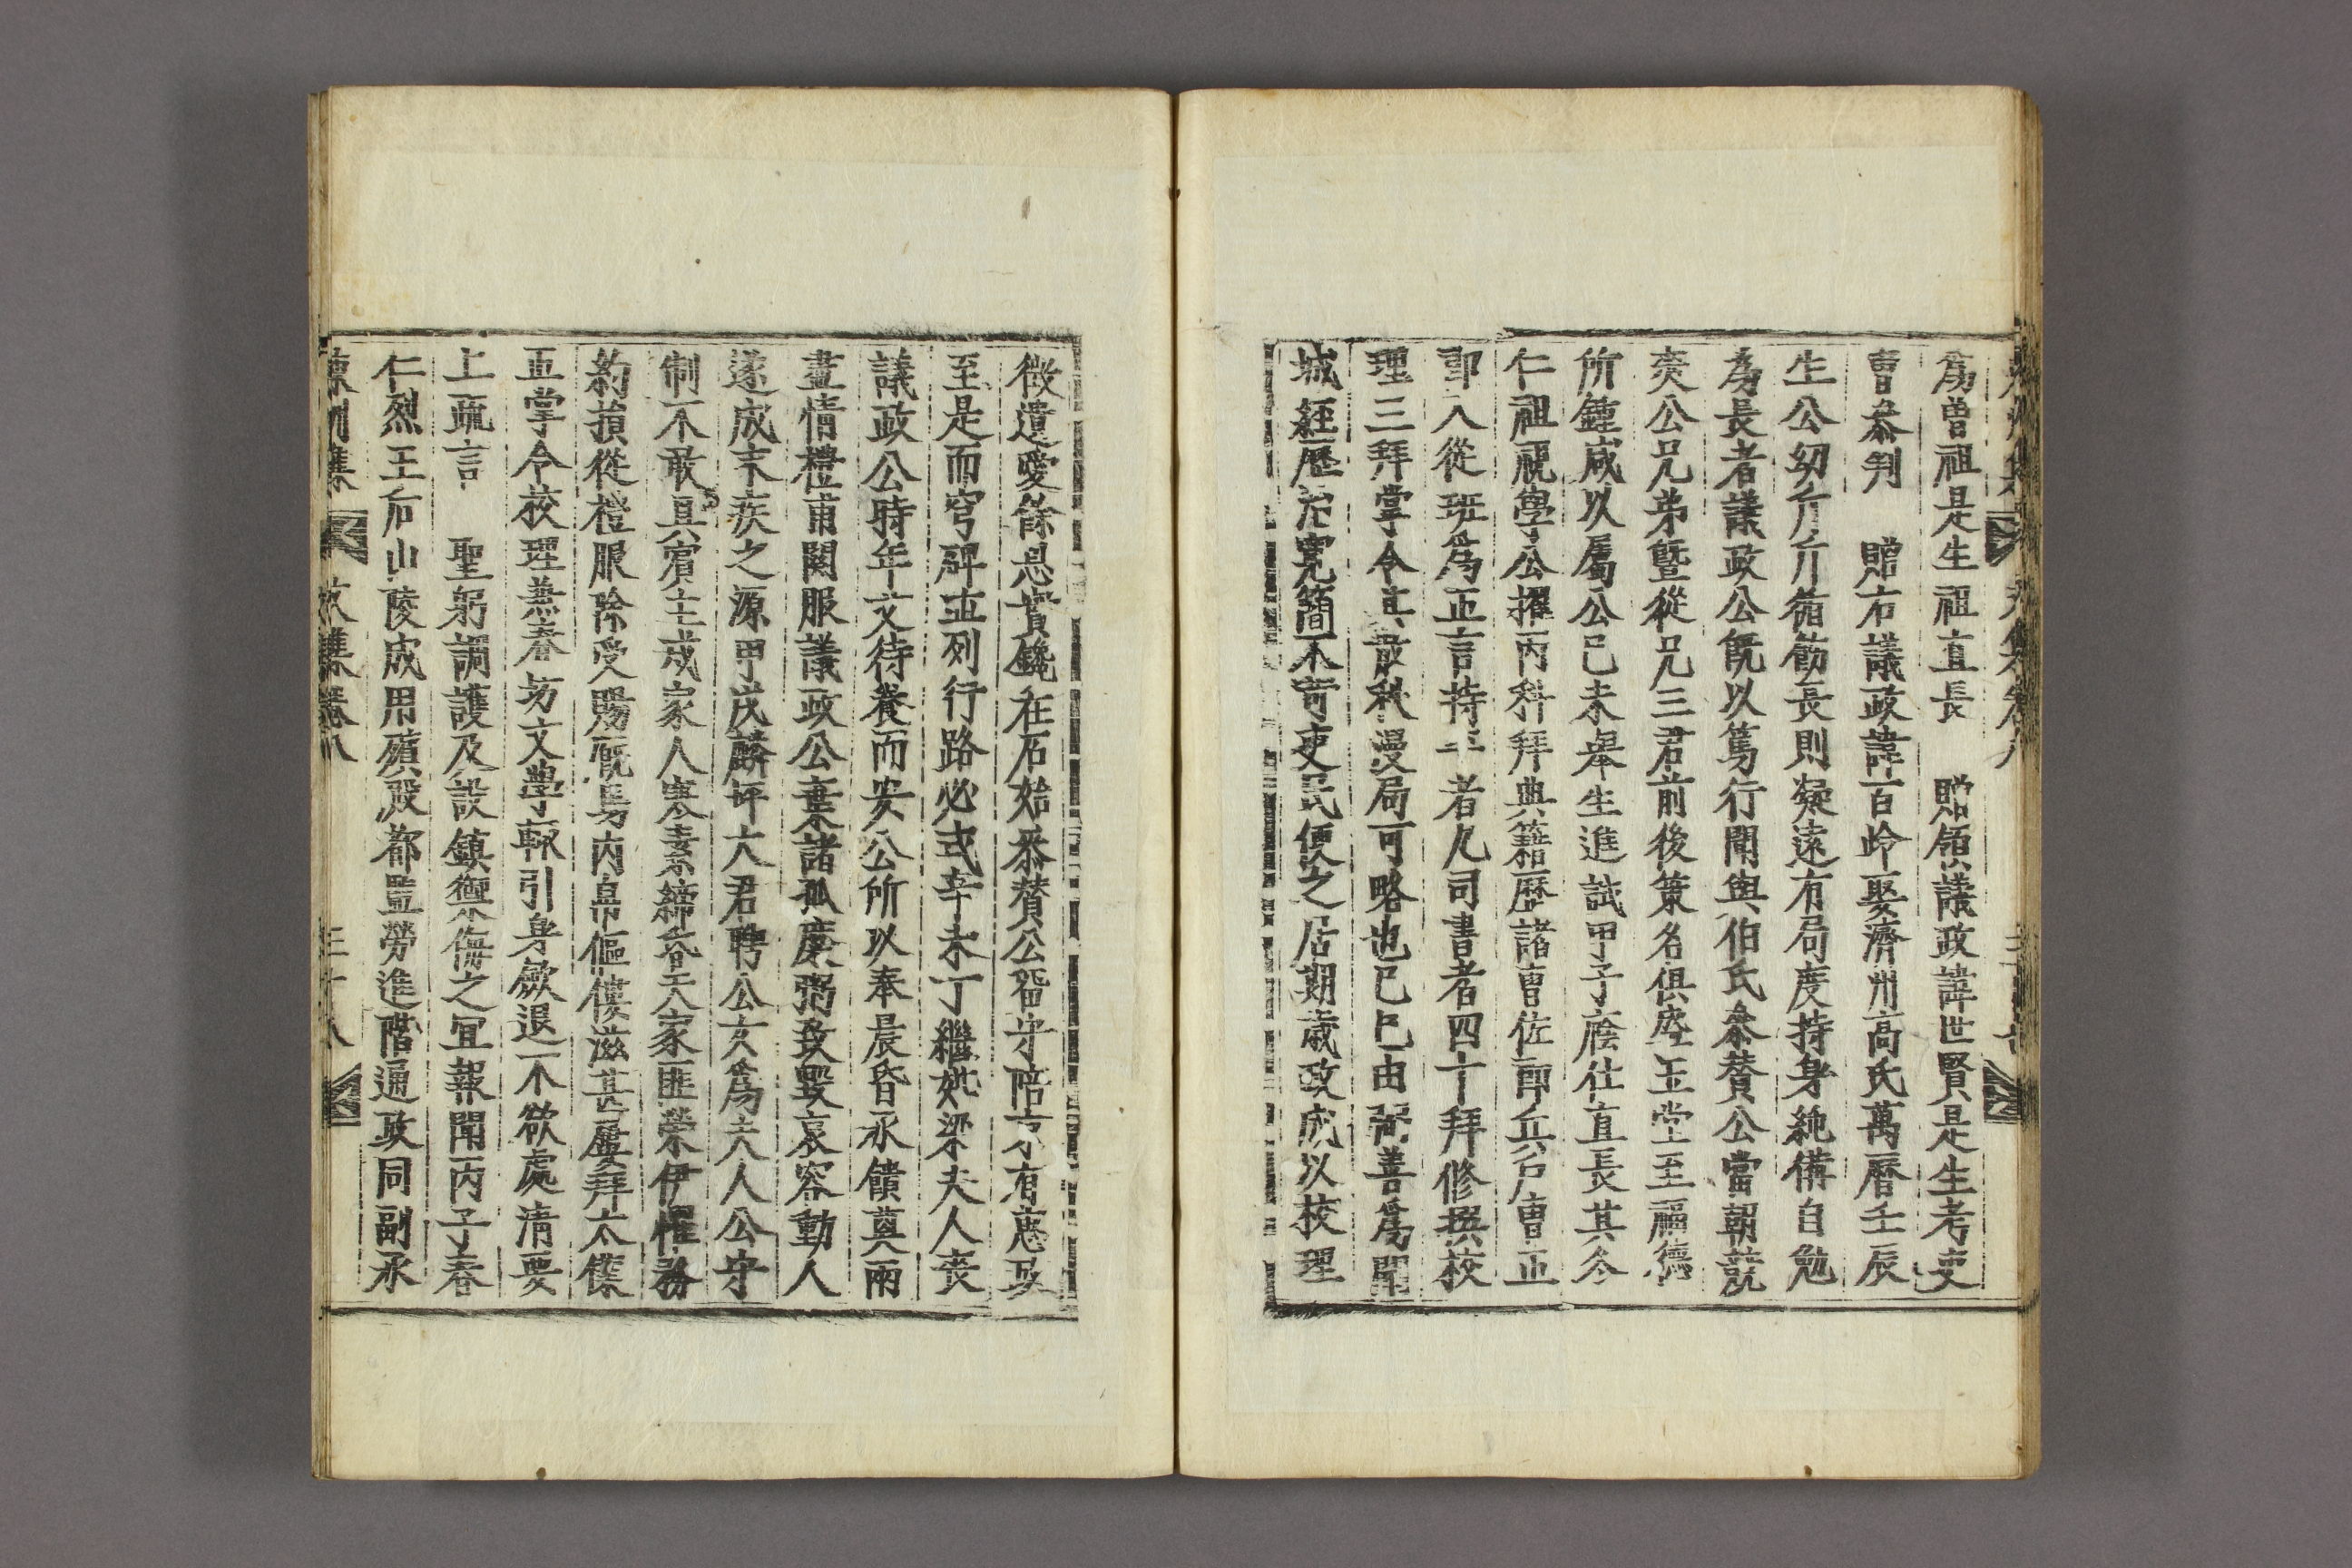 爲曾祖是生祖直長　贈領議政諱世賢是生考吏
曹叅判　贈右議政諱百岭娶濟州高氏萬曆壬辰
生公幼斤斤循勑長則凝遠有局度持身純備自勉
爲長者議政公旣以篤行聞與伯氏叅贊公當朝競
爽公兄弟曁從兄三君前後策名俱處玉堂至福德
所鍾咸以屬公己未舉生進試甲子蔭仕直長其冬
仁祖視學公擢丙科拜典籍歷諸曹佐郞兵户曹正
郞入從班爲正言持平者九司書者四十拜修撰校
理三拜掌令其散秩漫局可略也己巳由弼善爲開
城経歷治寬簡不苛吏民便之居期歲政成以校理
徵遺愛餘思實鐫在石始叅贊公留守陪京有惠政
至是而穹碑並列行路必式辛未丁繼妣梁夫人喪
議政公時年艾待養而安公所以奉晨昏承饋奠兩
盡情禮甫闋服議政公棄諸孤廬粥致毀哀容動人
遂成末疾之源甲戌麟坪大君聘公女爲夫人公守
制不敢具賓主戒家人寒素締眷天家匪榮伊懼務
約損從禮服除受賜廐馬內帛傴僂滋甚屢拜太僕
正掌令校理兼春坊文學輒引身歛退不欲處淸要
上疏言　聖躬調護及設鎮禦侮之宜報聞丙子春
仁烈王后山陵成用殯殿都監勞進階通政同副承
集卷八
三十八